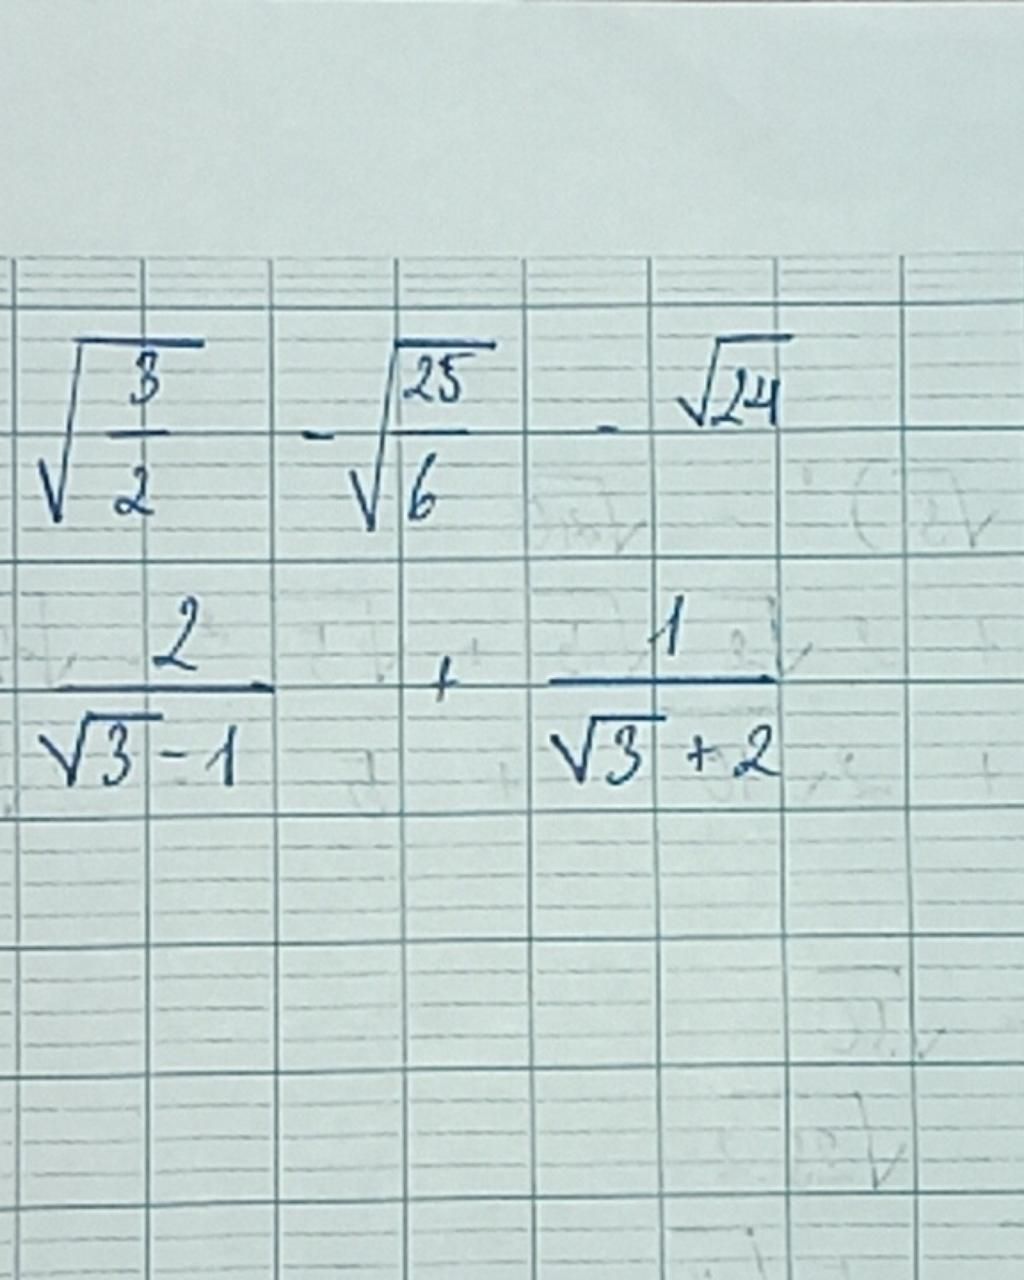 √(3/2) - √(25/6) - √24
2/(√3 - 1) + 1/(√3 + 2)